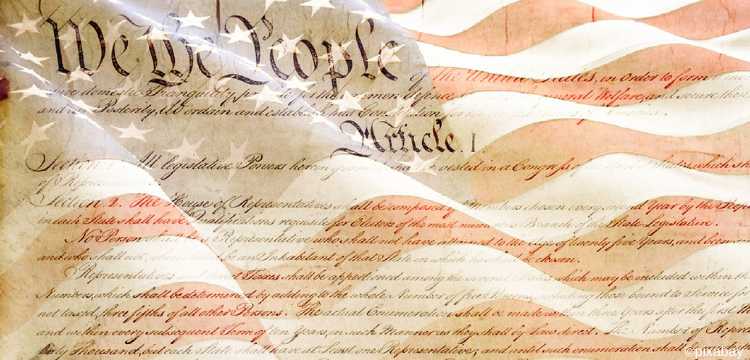 We the People
of the United States, in Order to form
domestic Tranquility, provide for the common defence, general Welfare, and secure the
Posterity, do ordain and establish this Constitution for America.
Article. I
Section. 1. All legislative Powers herein granted vested in a Congress of States, which
of Representatives
Section. 2. The House of Representatives shall be composed of Members chosen every second Year by the
in each State shall have Qualifications requisite for Electors of the most numerous Branch of the State Legislature.
No Person shall be a Representative who shall not have attained to the Age of twenty five Years, and been
and who shall not, when elected, be an Inhabitant of that State in which he shall be chosen.
Representatives and direct Taxes shall be apportioned among the several States which may be included within
Numbers, which shall be determined by adding to the whole Number of free Persons, including those bound to Service
not taxed, three fifths of all other Persons. The actual Enumeration shall be made within three Years after the first
and within every subsequent Term of ten Years, in such Manner as they shall by Law direct. The Number of
thirty Thousand, but each State shall have at Least one Representative; and until such enumeration
©pixabay